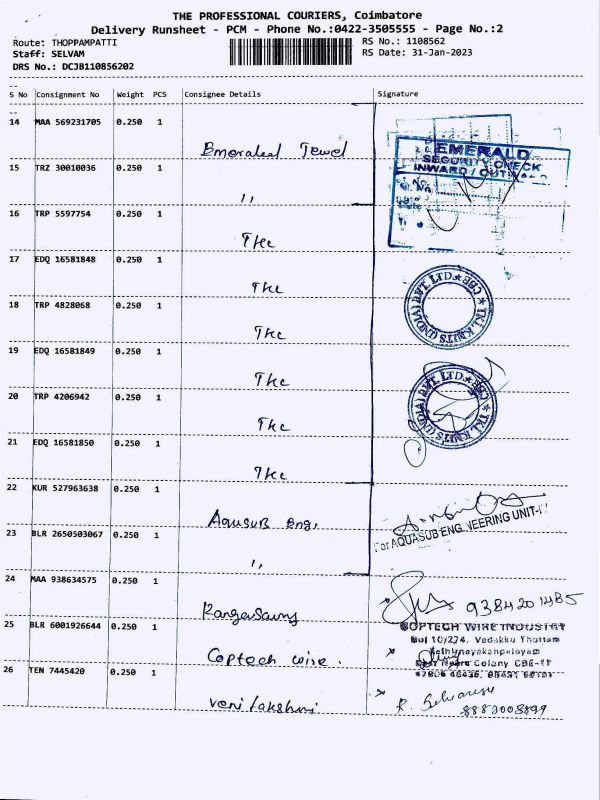 THE PROFESSIONAL COURIERS, Coimbatore
Delivery Runsheet - PCM - Phone No.:0422-3505555 - Page No.:2
Route: THOPPAMPATTI RS No.: 1108562
Staff: SELVAM RS Date: 31-Jan-2023
DRS No.: DCJB110856202
S No Consignment No Weight PCS Consignee Details Signature
14 MAA 569231705 0.250 1
Emerald Jewel
EMERALD
SECURITY CHECK
INWARD / OUTWARD
15 TRZ 30010036 0.250 1
,,
16 TRP 5597754 0.250 1
TKL
17 EDQ 16581848 0.250 1
TKL
TKL KNITS (INDIA) PVT. LTD. ★ CBE ★
18 TRP 4828068 0.250 1
TKL
19 EDQ 16581849 0.250 1
TKL
TKL KNITS (INDIA) PVT. LTD. ★ CBE ★
20 TRP 4206942 0.250 1
TKL
21 EDQ 16581850 0.250 1
TKL
22 KUR 527963638 0.250 1
Aqusub Eng,
For AQUASUB ENGINEERING UNIT-I
23 BLR 2650503067 0.250 1
,,
24 MAA 938634575 0.250 1
Rangasamy
9384201485
25 BLR 6001926644 0.250 1
Coptech wire.
COPTECH WIRE INDUSTRY
10/274, Vadakku Thottam
Nehru Colony CBE-14
26 TEN 7445420 0.250 1
veni lakshmi
R. Selvarasu